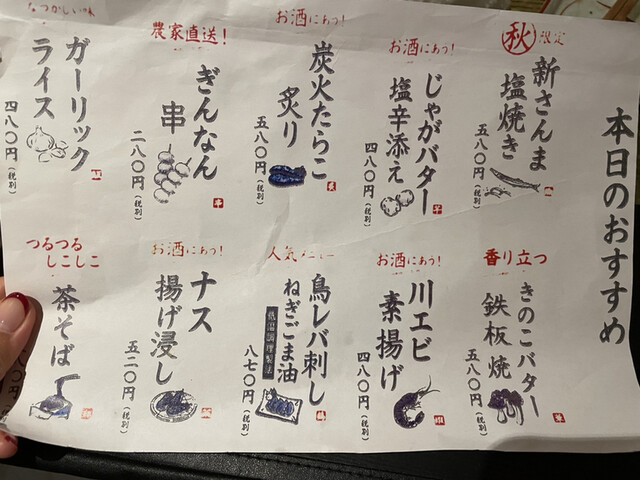 本日のおすすめ
秋限定
新さんま
塩焼き
五八〇円(税別)
お酒にあう!
じゃがバター
塩辛添え
四八〇円(税別)
お酒にあう!
炭火たらこ
炙り
五八〇円(税別)
農家直送!
ぎんなん
串
二八〇円(税別)
なつかしい味
ガーリック
ライス
四八〇円(税別)
香り立つ
きのこバター
鉄板焼
五八〇円(税別)
お酒にあう!
川エビ
素揚げ
四八〇円(税別)
人気メニュー
鳥レバ刺し
ねぎごま油
低温調理製法
八七〇円(税別)
お酒にあう!
ナス
揚げ浸し
五二〇円(税別)
つるつる
しこしこ
茶そば